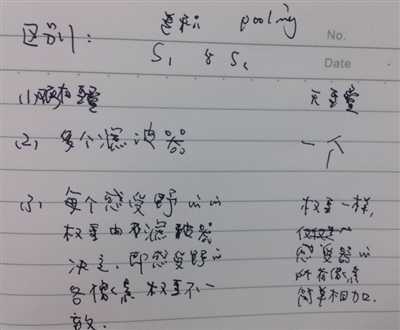 区别: 卷积 pooling
No.
S₁ 与 S₂
Date
(1) 权重 无重叠
(2) 多个滤波器 一个
(3) 每个感受野 权重一样,
权重由滤波器
决定, 即感受野 感受器
各像素 权重不一 所有像素
致. 简单相加.